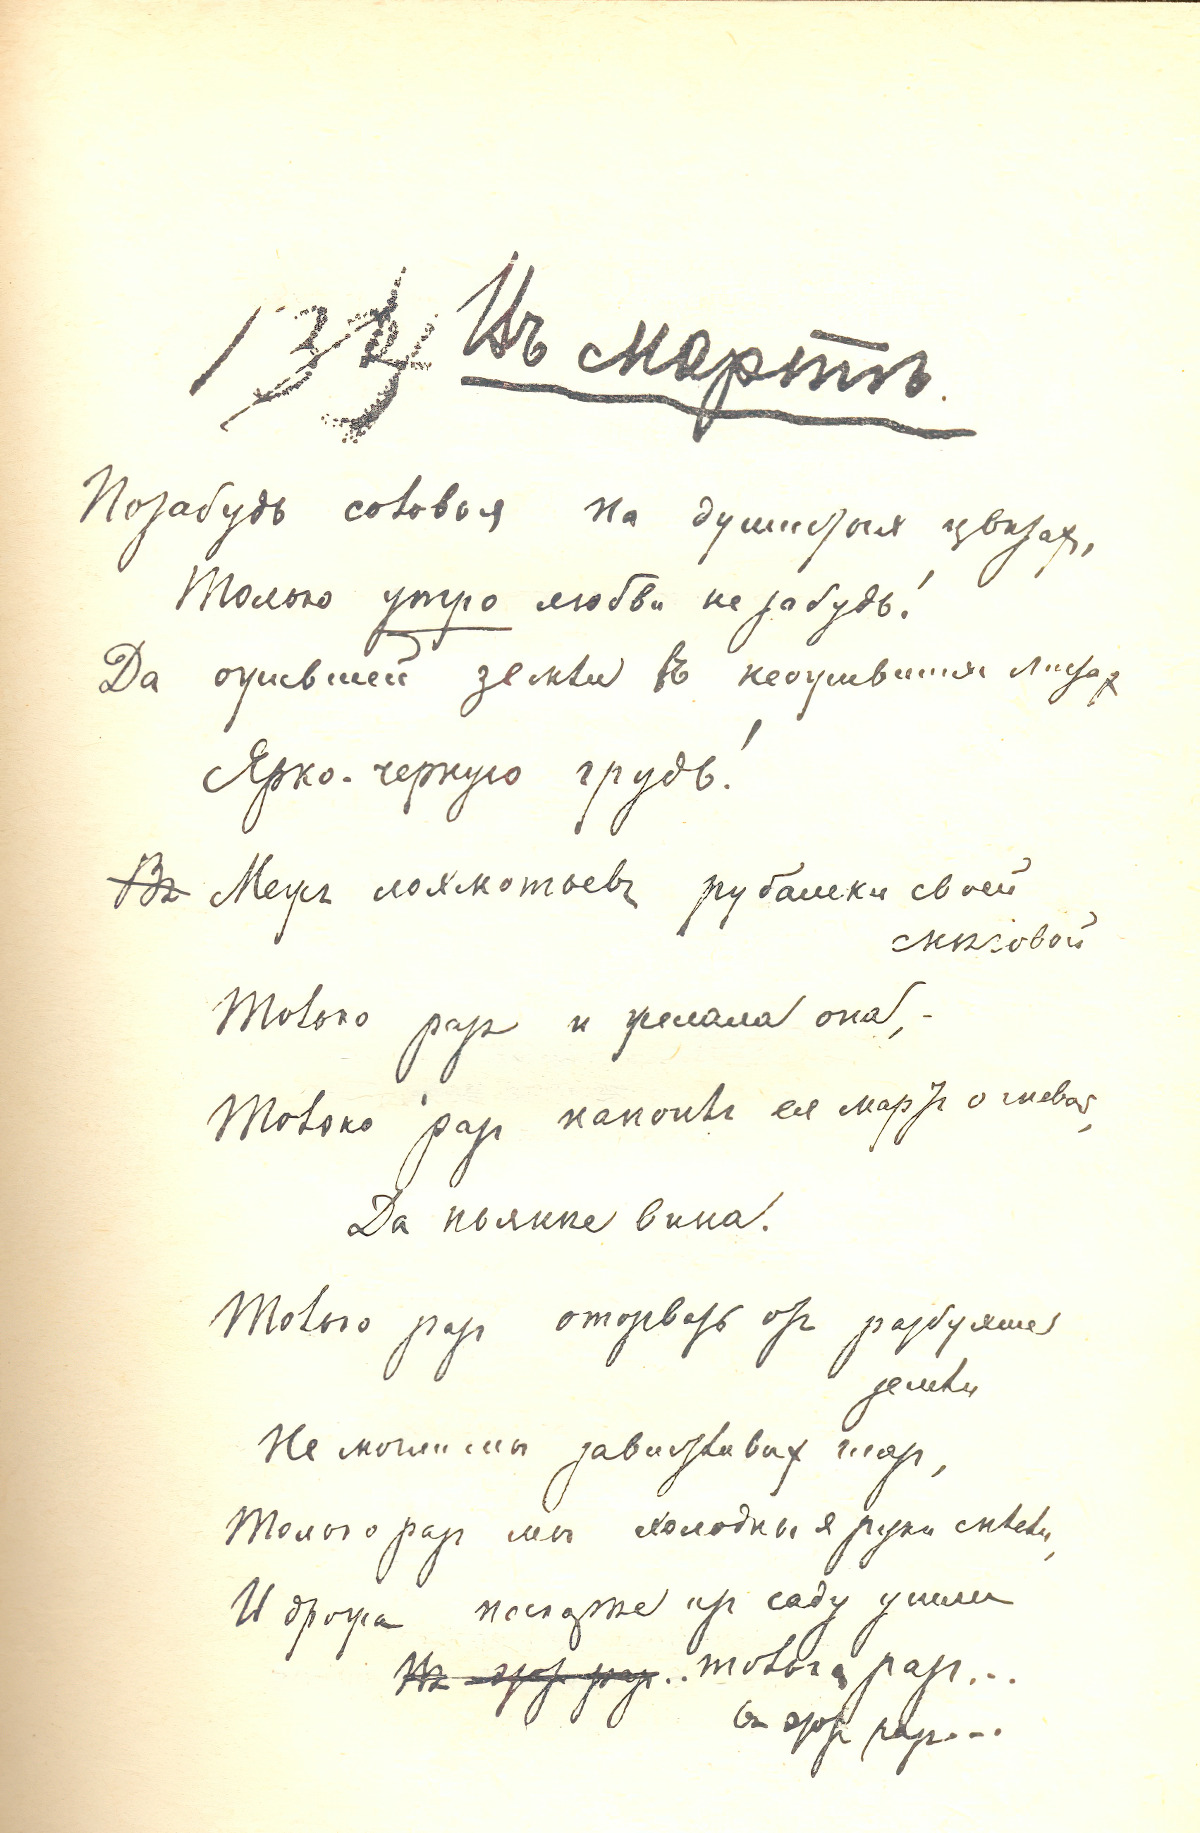 Въ мартѣ.
Позабудь соловья на душистыхъ цвѣтахъ,
Только утро любви не забудь!
Да ожившей земли въ неожившихъ листахъ
Ярко-черную грудь!
Межъ лохмотьевъ рубашки своей
снѣговой
Только разъ и желала она, -
Только разъ напоилъ ея мартъ огневой,
Да пьянѣе вина.
Только разъ оторвать отъ разбухшей
земли
Не могли мы завистливыхъ глазъ,
Только разъ мы холодныя руки сплели,
И дрожа поскорѣе изъ саду ушли
Въ этотъ разъ.. только разъ...
въ этотъ разъ...